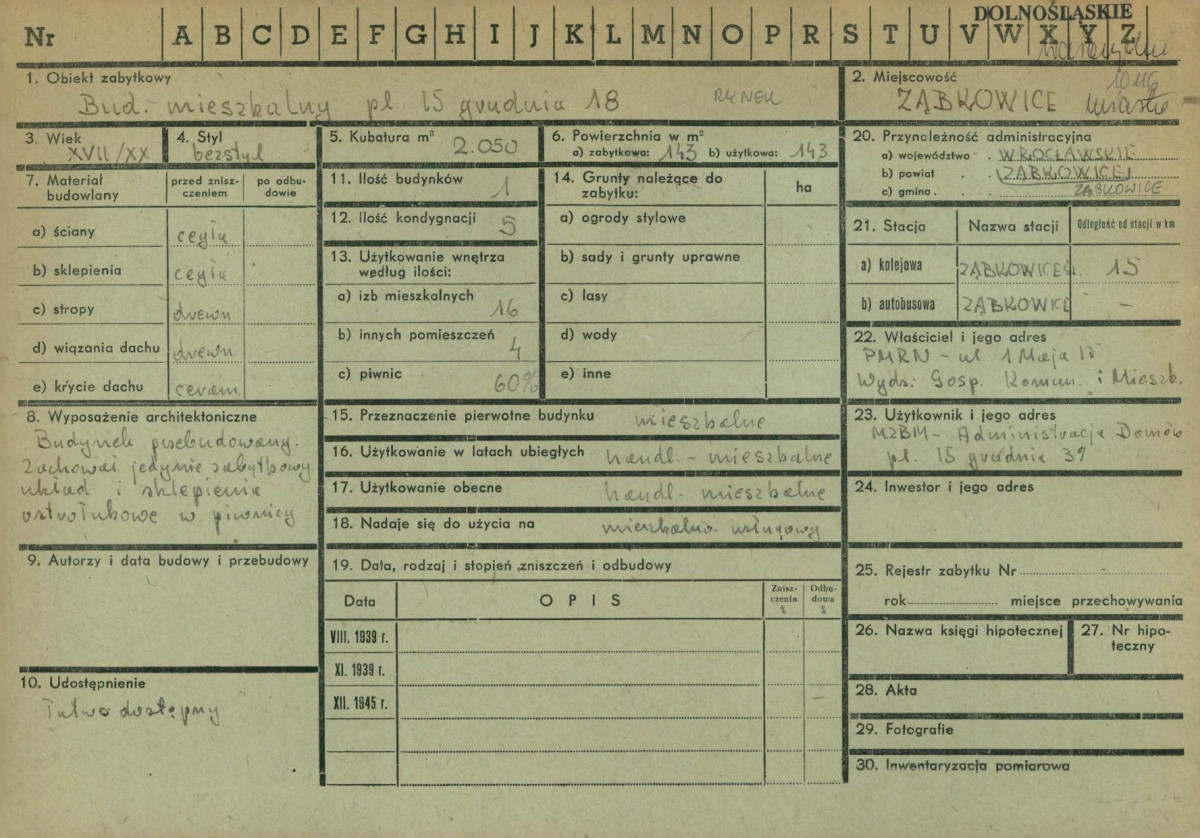 DOLNOŚLĄSKIE
Nr A B C D E F G H I J K L M N O P R S T U V W X Y Z
1. Obiekt zabytkowy
Bud. mieszkalny pl 15 grudnia 18 RYNEK
2. Miejscowość
ZĄBKOWICE
3. Wiek
XVII/XX
4. Styl
bezstyl
5. Kubatura m³
2.050
6. Powierzchnia w m²
a) zabytkowa: 143 b) użytkowa: 143
20. Przynależność administracyjna
a) województwo . WROCŁAWSKIE
b) powiat . . ZĄBKOWICE
c) gmina . . ZĄBKOWICE
7. Materiał budowlany
przed zniszczeniem
po odbudowie
a) ściany cegła
b) sklepienia cegła
c) stropy drewn
d) wiązania dachu drewn
e) krycie dachu ceram.
11. Ilość budynków 1
12. Ilość kondygnacji 5
13. Użytkowanie wnętrza
według ilości:
a) izb mieszkalnych 16
b) innych pomieszczeń 4
c) piwnic 60%
14. Grunty należące do
zabytku:
ha
a) ogrody stylowe
b) sady i grunty uprawne
c) lasy
d) wody
e) inne
21. Stacja Nazwa stacji Odległość od stacji w km
a) kolejowa ZĄBKOWICE 15
b) autobusowa ZĄBKOWICE –
22. Właściciel i jego adres
PMRN - ul 1 Maja 15
Wydz. Gosp. Komun. i Mieszk.
8. Wyposażenie architektoniczne
Budynek przebudowany.
Zachował jedynie zabytkowy
układ i sklepienia
ostrołukowe w piwnicy
15. Przeznaczenie pierwotne budynku mieszkalne
16. Użytkowanie w latach ubiegłych handl. - mieszkalne
17. Użytkowanie obecne handl- mieszkalne
18. Nadaje się do użycia na mieszkalno. usługowy
23. Użytkownik i jego adres
MZBM - Administracja Domów
pl. 15 grudnia 39
24. Inwestor i jego adres
9. Autorzy i data budowy i przebudowy
19. Data, rodzaj i stopień zniszczeń i odbudowy
Data OPIS Zniszczenia % Odbudowa %
VIII. 1939 r.
XI. 1939 r.
XII. 1945 r.
25. Rejestr zabytku Nr
rok miejsce przechowywania
26. Nazwa księgi hipotecznej
27. Nr hipoteczny
10. Udostępnienie
Łatwo dostępny
28. Akta
29. Fotografie
30. Inwentaryzacja pomiarowa